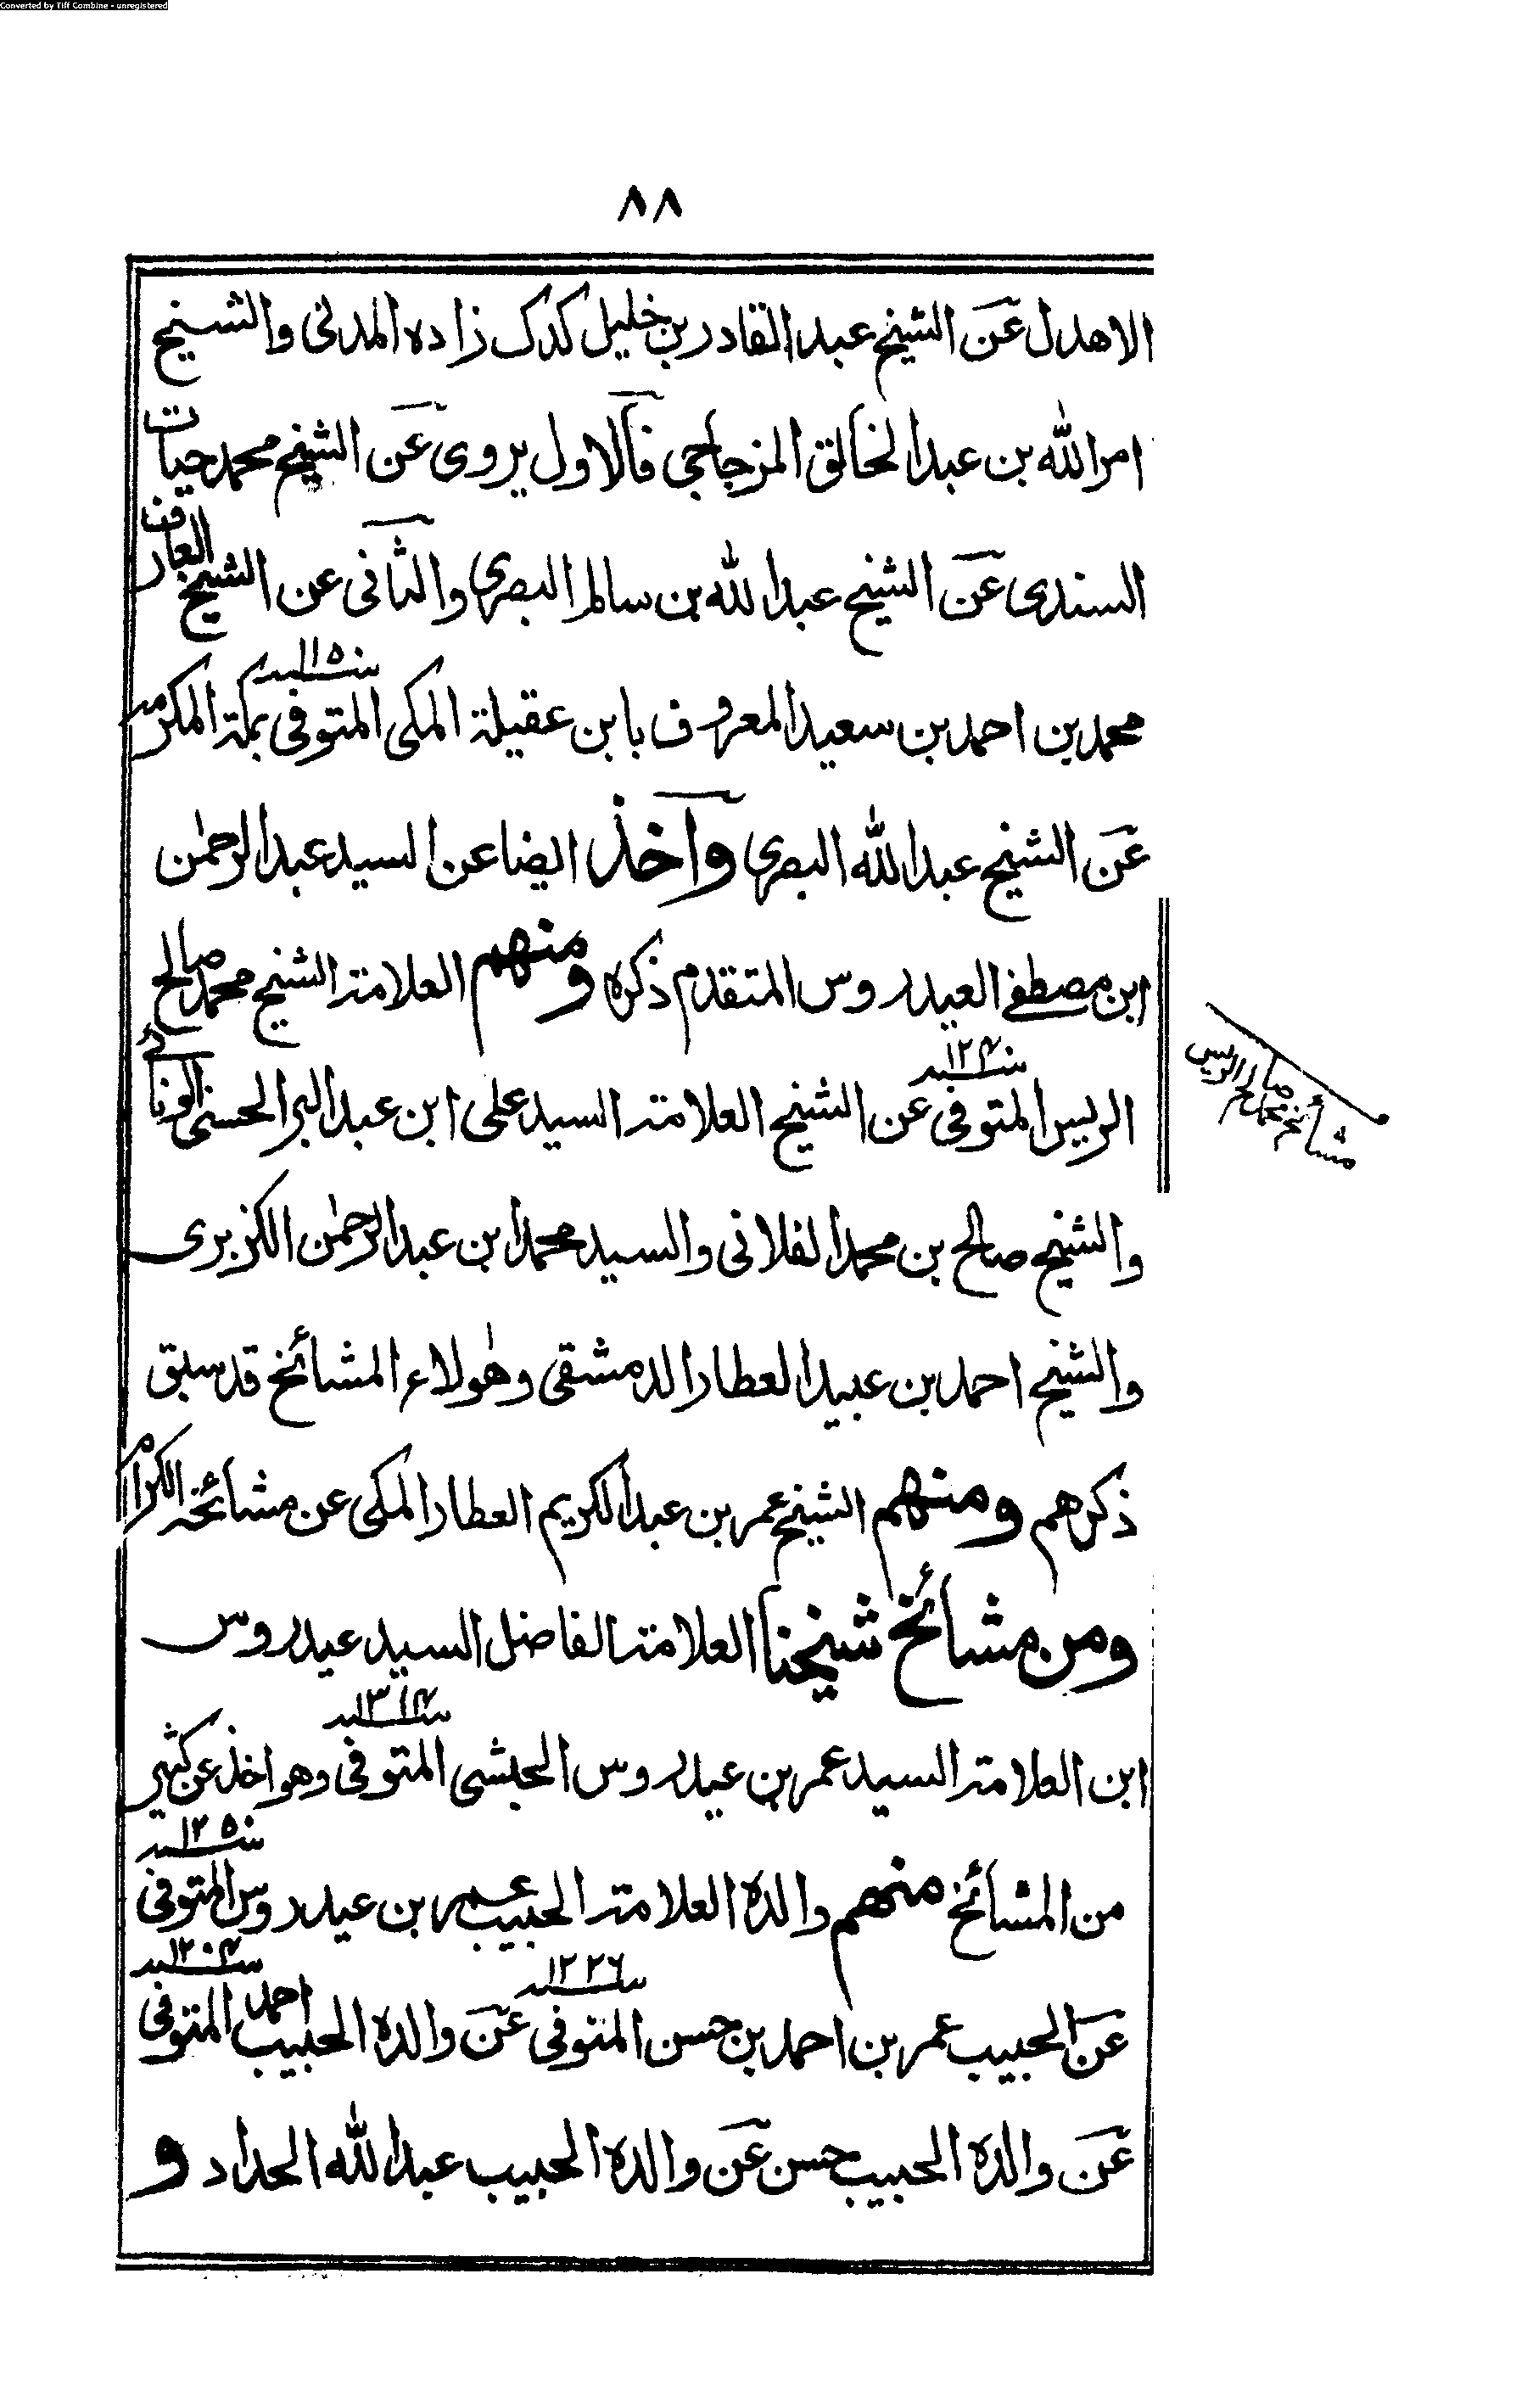 Converted by Tiff Combine - unregistered
٨٨
الاهدل عن الشيخ عبد القادر بن خليل كدك زاده المدنى والشيخ
امر الله بن عبد الخالق المزجاجى فالاول يروى عن الشيخ محمد حيات
السندى عن الشيخ عبد الله بن سالم البصرى والثانى عن الشيخ العارف
محمد بن احمد بن سعيد المعروف بابن عقيلة المكى المتوفى بمكة المكرمة سنة ١١٥٠
عن الشيخ عبد الله البصرى واخذ ايضا عن السيد عبد الرحمٰن
ابن مصطفے العيدروس المتقدم ذكره ومنهم العلامة الشيخ محمد صالح
الريس المتوفى سنة ١٢٤٠ عن الشيخ العلامة السيد على ابن عبد البر الحسنى الونائى
والشيخ صالح بن محمد الفلانى والسيد محمد ابن عبد الرحمٰن الكزبرى
والشيخ احمد بن عبيد العطار الدمشقى وهٰولاء المشائخ قد سبق
ذكرهم ومنهم الشيخ عمر بن عبد الكريم العطار المكى عن مشائخه الكرام
ومن مشائخ شيخنا العلامة الفاضل السيد عيدروس
ابن العلامة السيد عمر بن عيدروس الحبشى المتوفى سنة ١٣١٤ وهو اخذ عن كثير
من المشائخ منهم والده العلامة الحبيب عمر بن عيدروس المتوفى سنة ١٢٥٠
عن الحبيب عمر بن احمد بن حسن المتوفى سنة ١٢٢٦ عن والده الحبيب احمد المتوفى سنة ١٢٠٤
عن والده الحبيب حسن عن والده الحبيب عبد الله الحداد و
مشائخ محمد صالح الريس